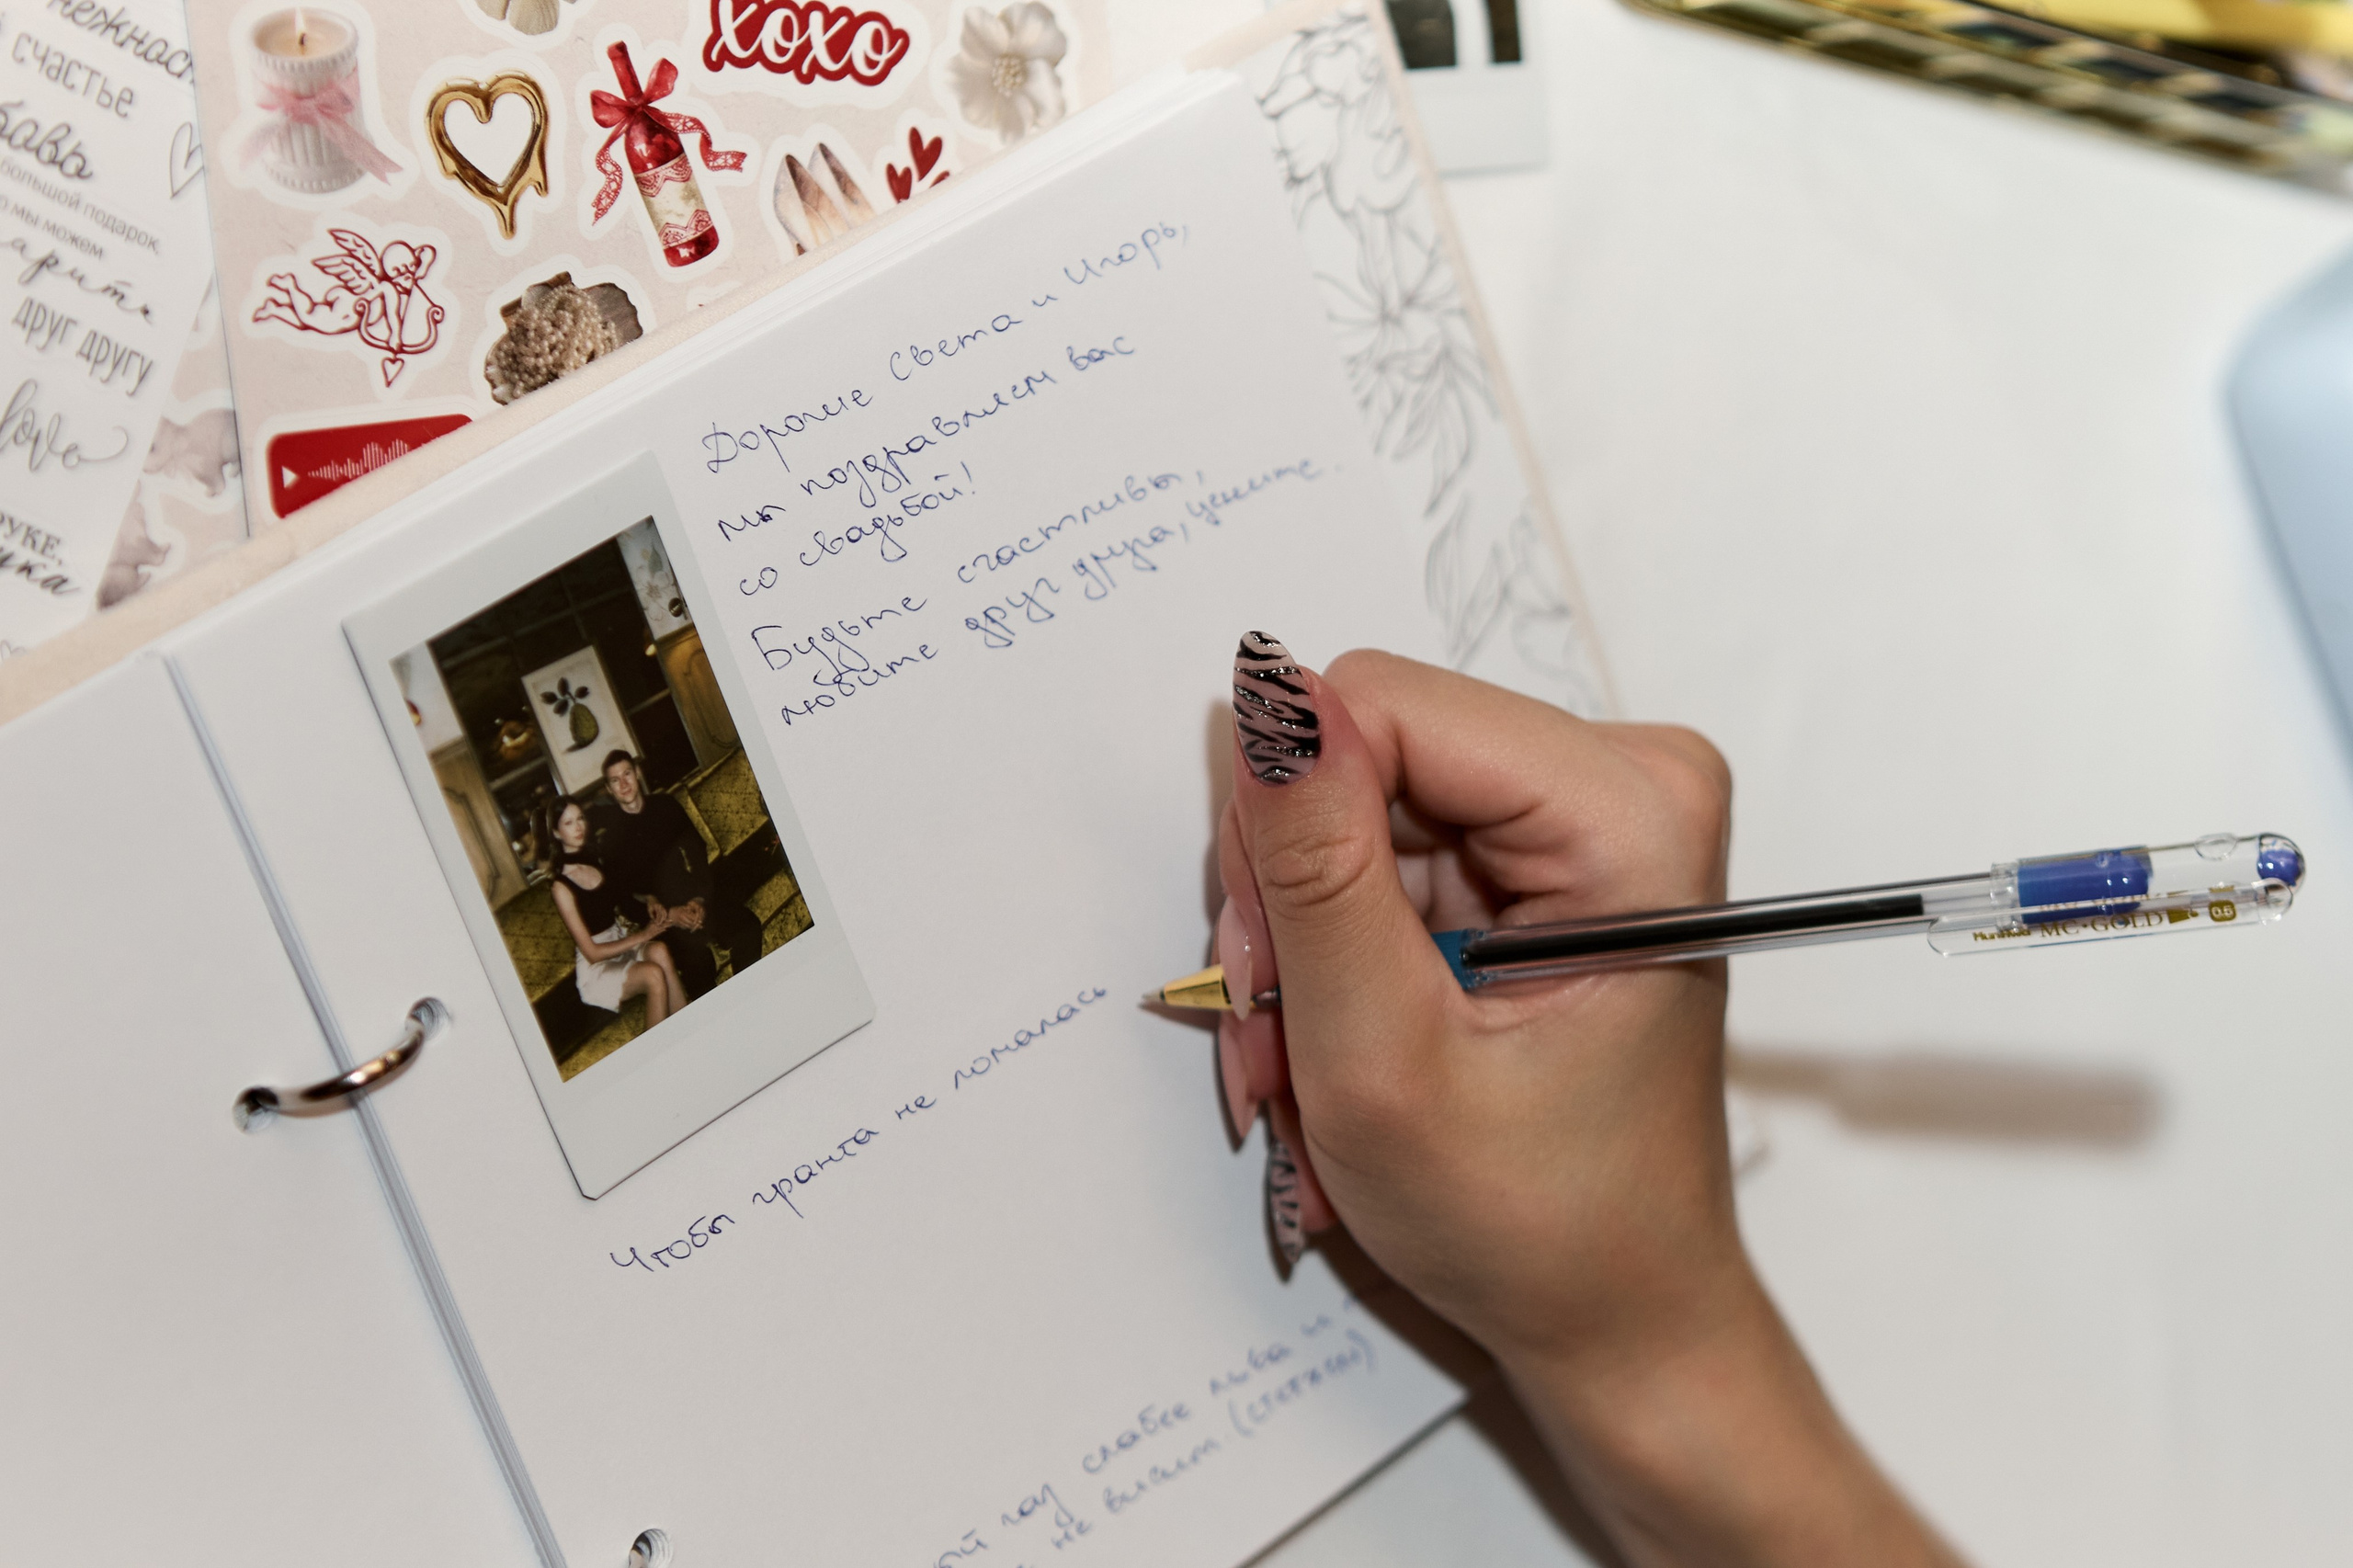 нежност
счастье
большой подарок,
мы можем
друг другу
love
РУКЕ,
xoxo
Дорогие Света и Игорь,
мы поздравляем вас
со свадьбой!
Будьте счастливы,
любите друг друга, цените.
Чтобы гранта не ломалась
слабее льва и
не
MC·GOLD 0.5